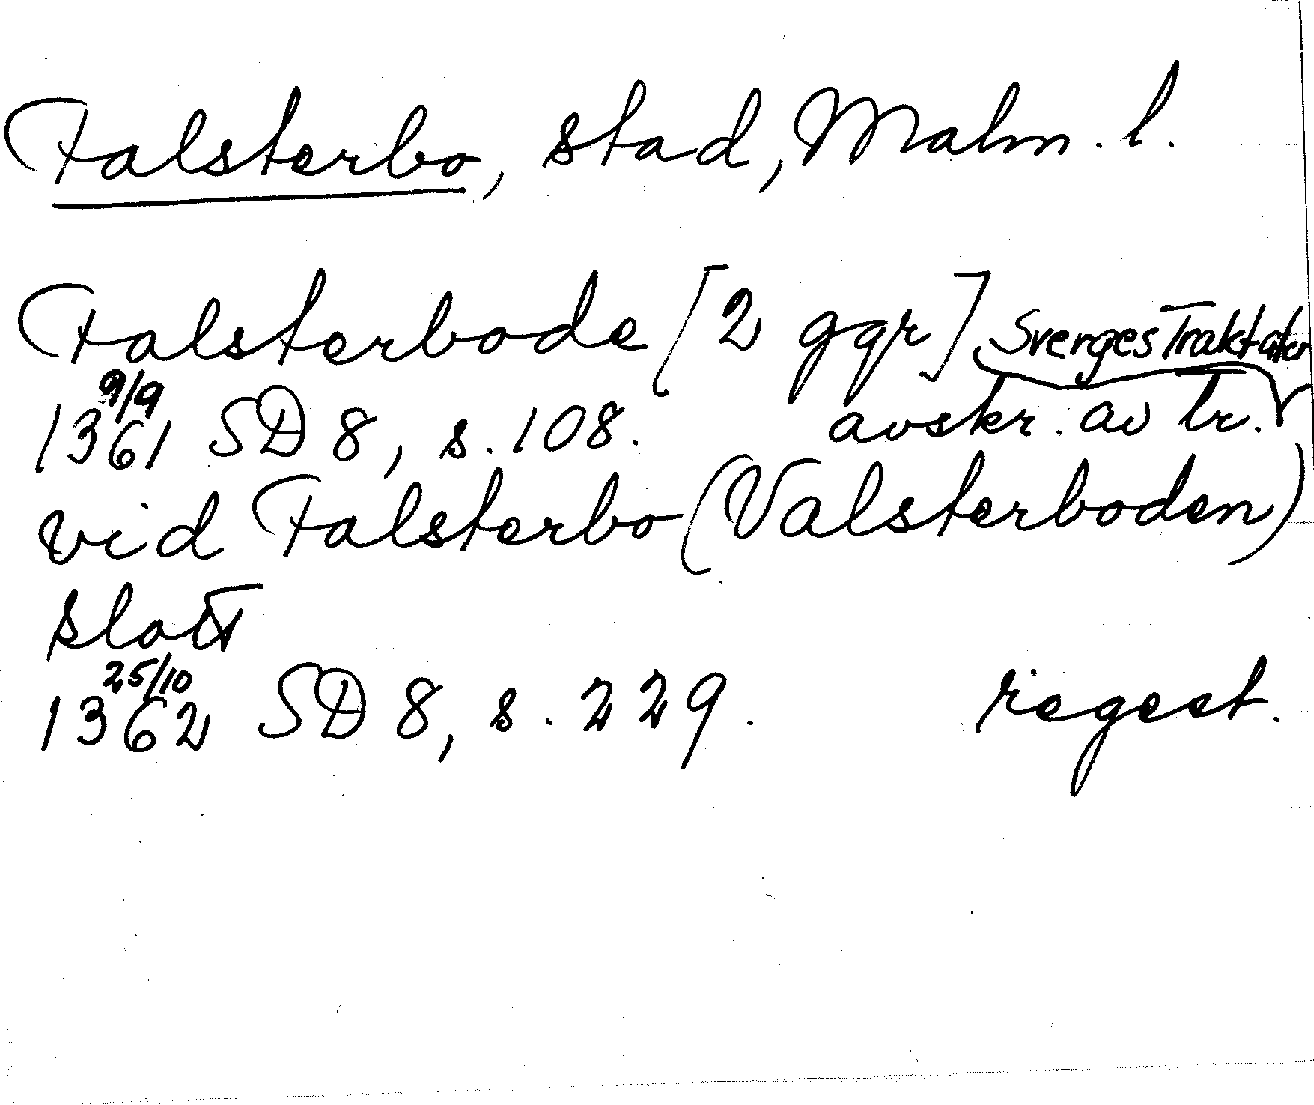 Falsterbo, stad, Malm. l.
Falsterbode [2 ggr] Sverges Traktater
9/9
1361 SD 8, s. 108. avskr. av tr.
vid Falsterbo (Valsterboden)
slott
25/10
1362 SD 8, s. 229. regest.